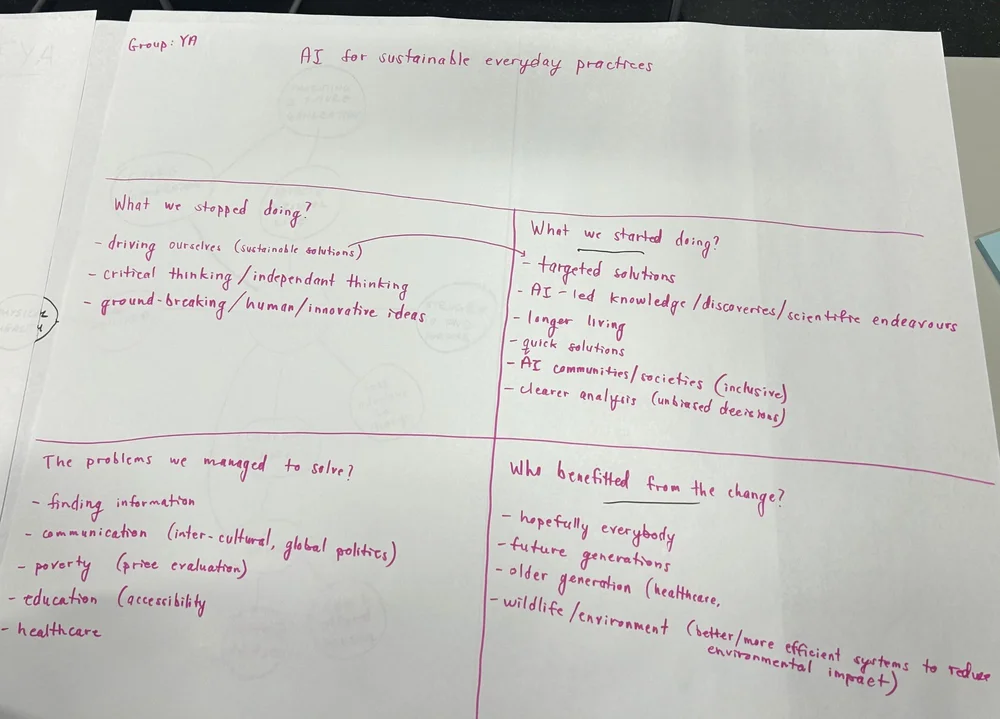 Group: YA
AI for sustainable everyday practices
What we stopped doing?
- driving ourselves (sustainable solutions)
- critical thinking/independant thinking
- ground-breaking/human/innovative ideas
What we started doing?
- targeted solutions
- AI-led knowledge/discoveries/scientific endeavours
- longer living
- quick solutions
- AI communities/societies (inclusive)
- clearer analysis (unbiased decisions)
The problems we managed to solve?
- finding information
- communication (inter-cultural, global politics)
- poverty (price evaluation)
- education (accessibility
- healthcare
Who benefitted from the change?
- hopefully everybody
- future generations
- older generation (healthcare,
- wildlife/environment (better/more efficient systems to reduce
environmental impact)